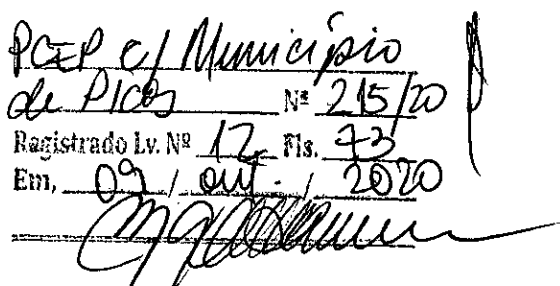 PCEP c/ Município
de Picos Nº 215/20
Registrado Lv. Nº 12 Fls. 73
Em, 09 / out. / 2020